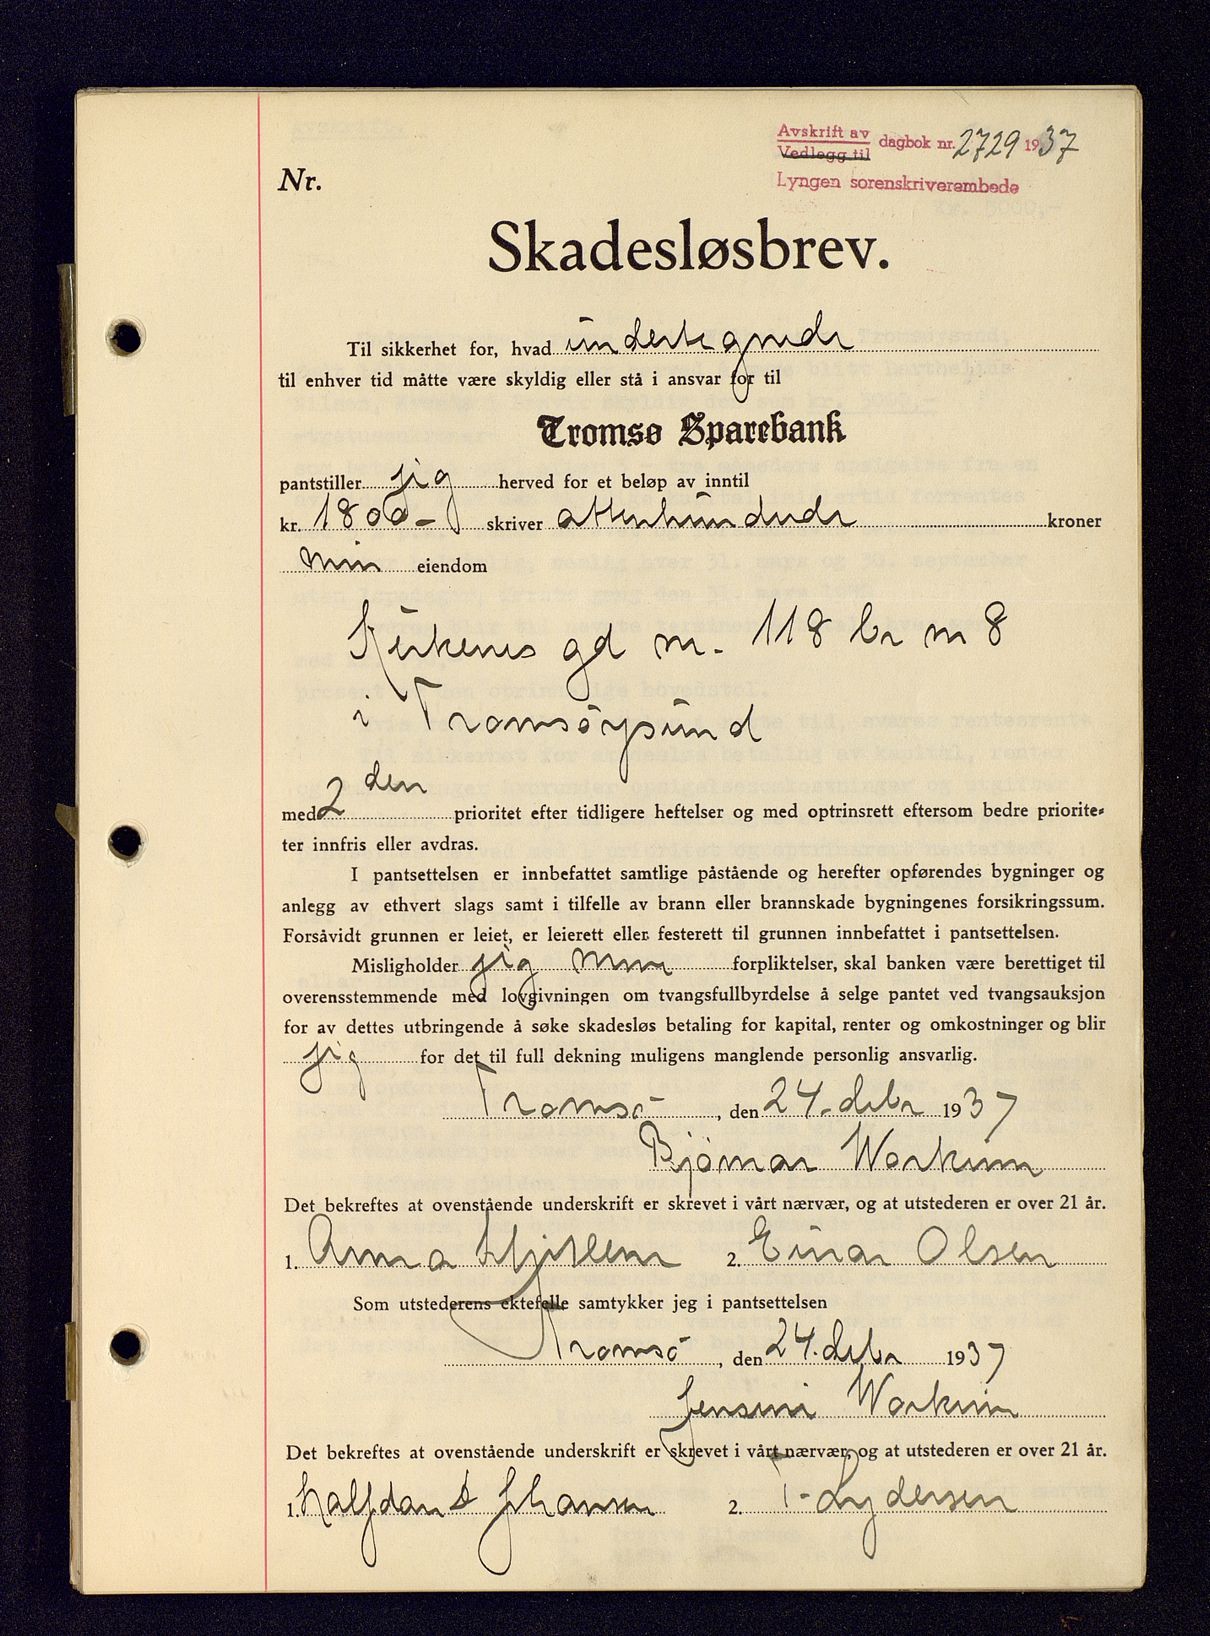 Avskrift av
Vedlegg til
dagbok nr. 2729 1937
Lyngen sorenskriverembede
Nr.
Kr. 5000,-
Skadesløsbrev.
Til sikkerhet for, hvad undertegnede
til enhver tid måtte være skyldig eller stå i ansvar for til
Tromsø Sparebank
pantstiller jeg herved for et beløp av inntil
kr. 1800- skriver attenhundrede kroner
min eiendom
gd nr. 118 br nr 8
i Tromsöysund
med 2den prioritet efter tidligere heftelser og med optrinsrett eftersom bedre priorite-
ter innfris eller avdras.
I pantsettelsen er innbefattet samtlige påstående og herefter opførendes bygninger og
anlegg av ethvert slags samt i tilfelle av brann eller brannskade bygningenes forsikringssum.
Forsåvidt grunnen er leiet, er leierett eller festerett til grunnen innbefattet i pantsettelsen.
Misligholder jeg mine forpliktelser, skal banken være berettiget til
overensstemmende med lovgivningen om tvangsfullbyrdelse å selge pantet ved tvangsauksjon
for av dettes utbringende å søke skadesløs betaling for kapital, renter og omkostninger og blir
jeg for det til full dekning muligens manglende personlig ansvarlig.
Tromsö, den 24. debr 1937
Bjömar Workinn
Det bekreftes at ovenstående underskrift er skrevet i vårt nærvær, og at utstederen er over 21 år.
1. Anna 2. Einar Olsen
Som utstederens ektefelle samtykker jeg i pantsettelsen
Tromsö, den 24. debr 1937
Jensine Workinn
Det bekreftes at ovenstående underskrift er skrevet i vårt nærvær, og at utstederen er over 21 år.
1. Halfdan Johansen 2. T. Lydersen